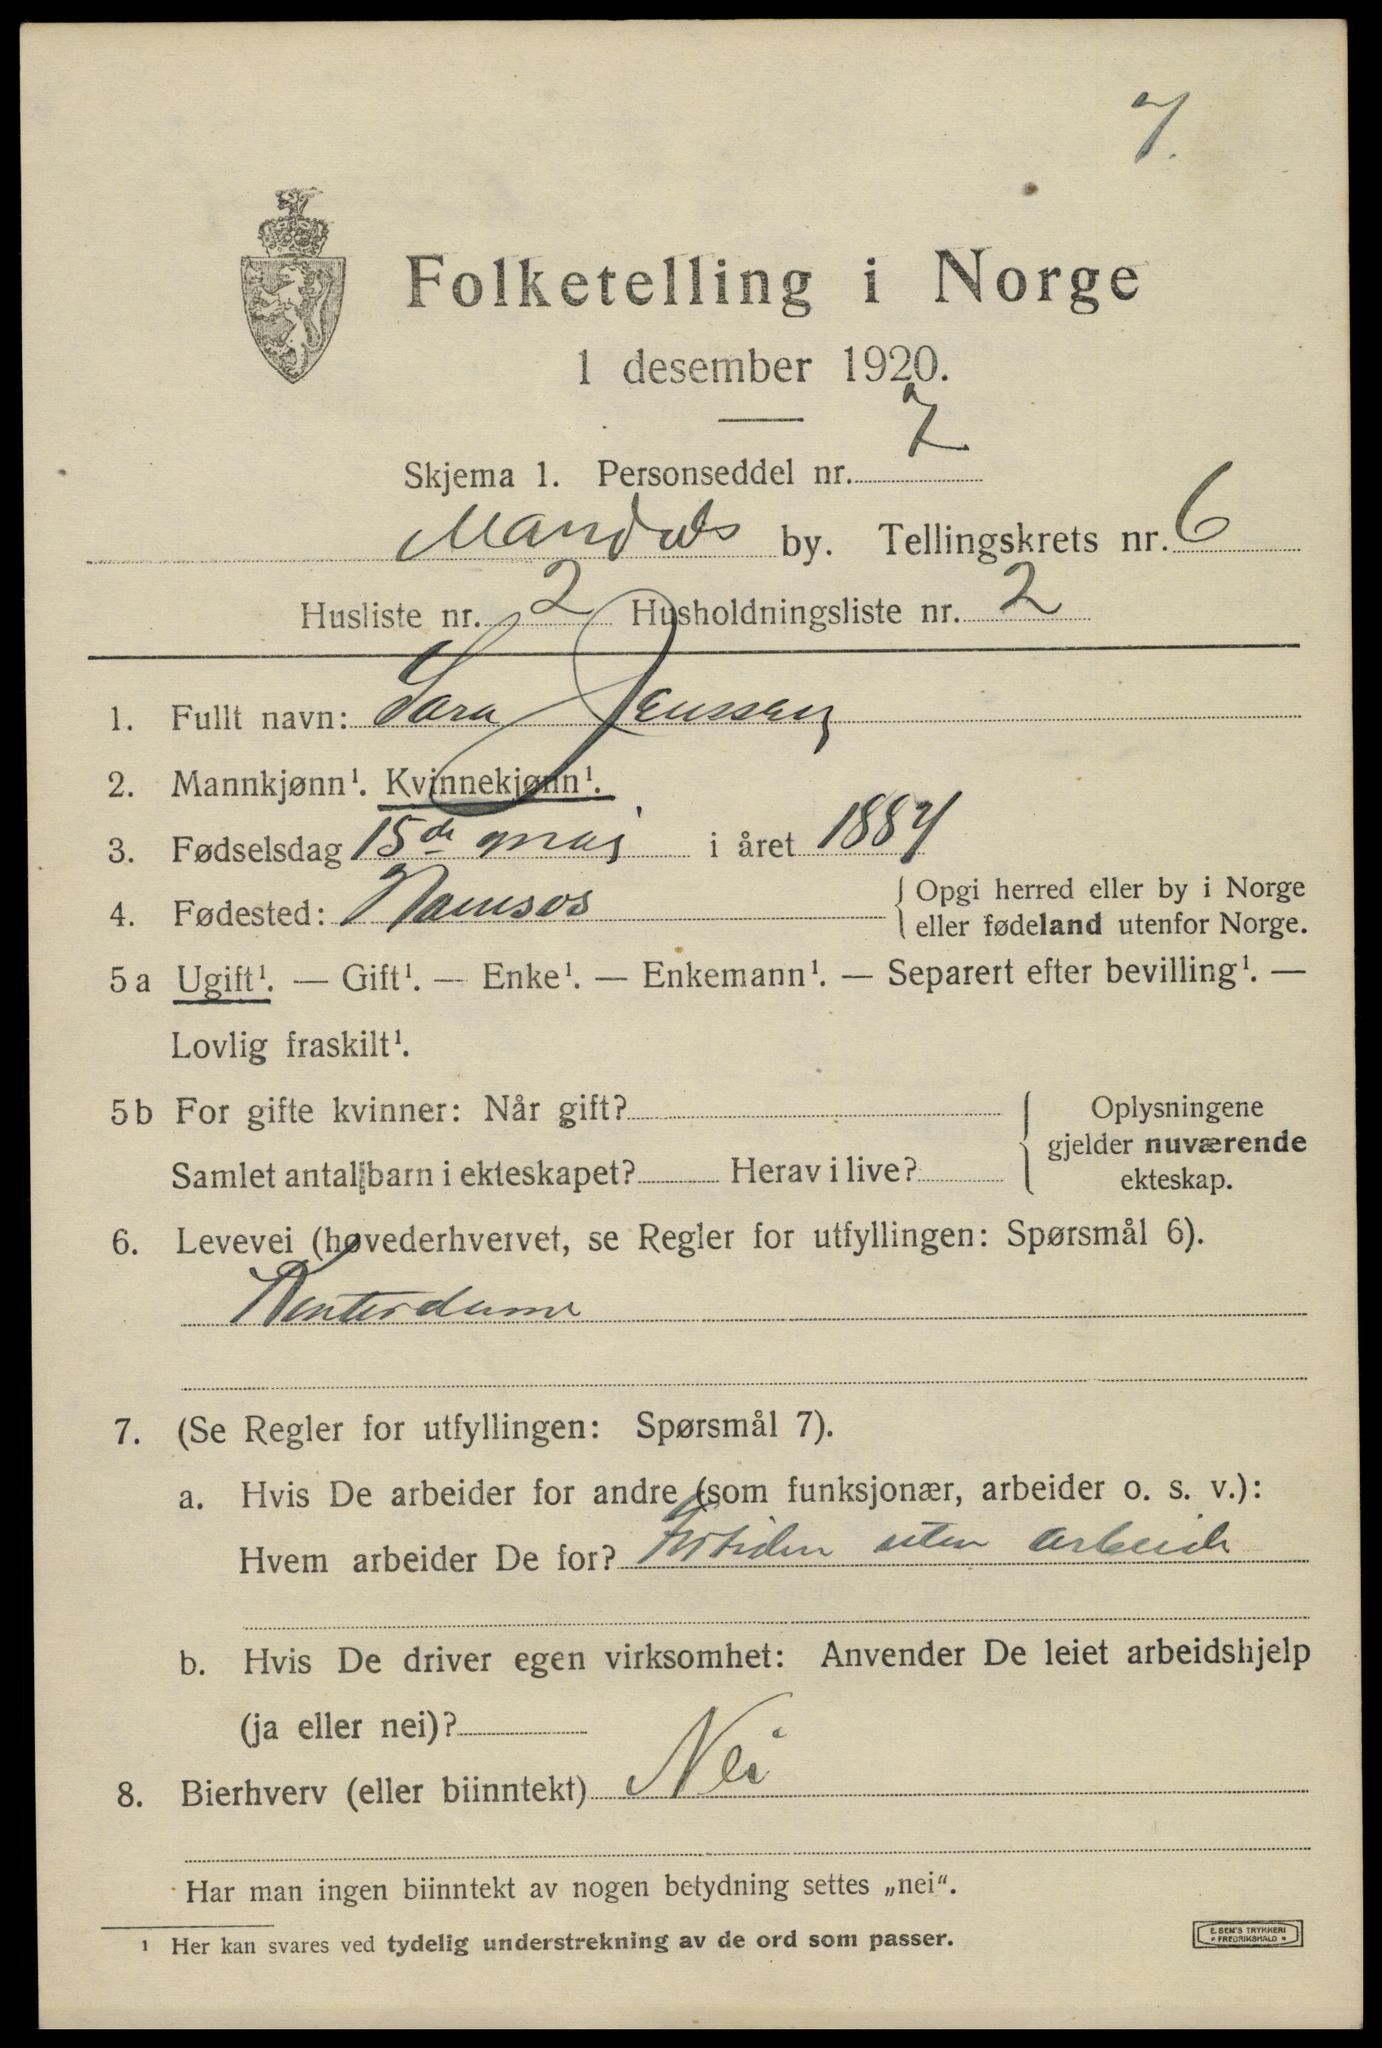 7.
Folketelling i Norge
1 desember 1920.
Skjema 1. Personseddel nr. 7
Mandals by. Tellingskrets nr. 6
Husliste nr. 2 Husholdningsliste nr. 2
1. Fullt navn: Sara Jenssen
2. Mannkjønn¹. Kvinnekjønn¹.
3. Fødselsdag 15de mai i året 1884
4. Fødested: Namsos { Opgi herred eller by i Norge
eller fødeland utenfor Norge.
5 a Ugift¹. — Gift¹. — Enke¹. — Enkemann¹. — Separert efter bevilling¹. —
Lovlig fraskilt¹.
5 b For gifte kvinner: Når gift? { Oplysningene
gjelder nuværende
Samlet antal barn i ekteskapet? Herav i live? ekteskap.
6. Levevei (hovederhvervet, se Regler for utfyllingen: Spørsmål 6).
Kontordame
7. (Se Regler for utfyllingen: Spørsmål 7).
a. Hvis De arbeider for andre (som funksjonær, arbeider o. s. v.):
Hvem arbeider De for? For tiden uten arbeide
b. Hvis De driver egen virksomhet: Anvender De leiet arbeidshjelp
(ja eller nei)?
8. Bierhverv (eller biinntekt) Nei
Har man ingen biinntekt av nogen betydning settes „nei“.
¹ Her kan svares ved tydelig understrekning av de ord som passer.
E. SEM'S TRYKKERI
* FREDRIKSHALD *